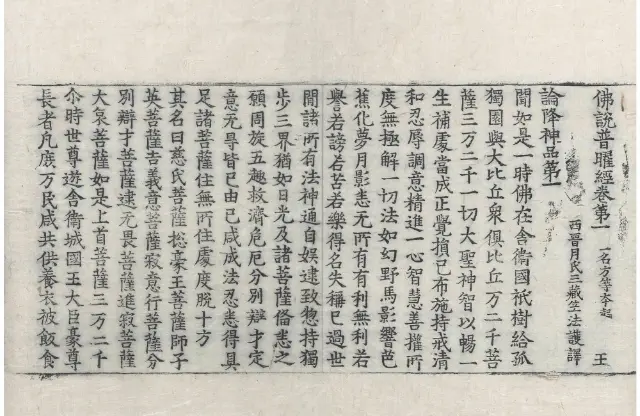 佛說普曜經卷第一 一名方等本起 王
西晉月氏三藏竺法護譯
論降神品第一
聞如是一時佛在舍衛國祇樹給孤
獨園與大比丘衆俱比丘万二千菩
薩三万二千一切大聖神智以暢一
生補處當成正覺損己布施持戒清
和忍辱調意精進一心智慧善權所
度無極解一切法如幻野馬影響芭
蕉化夢月影悉无所有有利無利若
譽若謗若苦若樂得名失稱已過世
間諸所有法神通自娛逮致惣持獨
步三界猶如日光及諸菩薩俻悉之
願周旋五趣救濟危厄分別辯才定
意无㝵皆已由己咸成法忍悉得具
足諸菩薩住無所住處度脫十方
其名曰慈氏菩薩摠豪王菩薩師子
英菩薩吉義意菩薩寂意行菩薩分
別辯才菩薩逮无畏菩薩進寂菩薩
大哀菩薩如是上首菩薩三万二千
尒時世尊遊舍衛城國王大臣豪尊
長者凡庶万民咸共供養衣被飯食